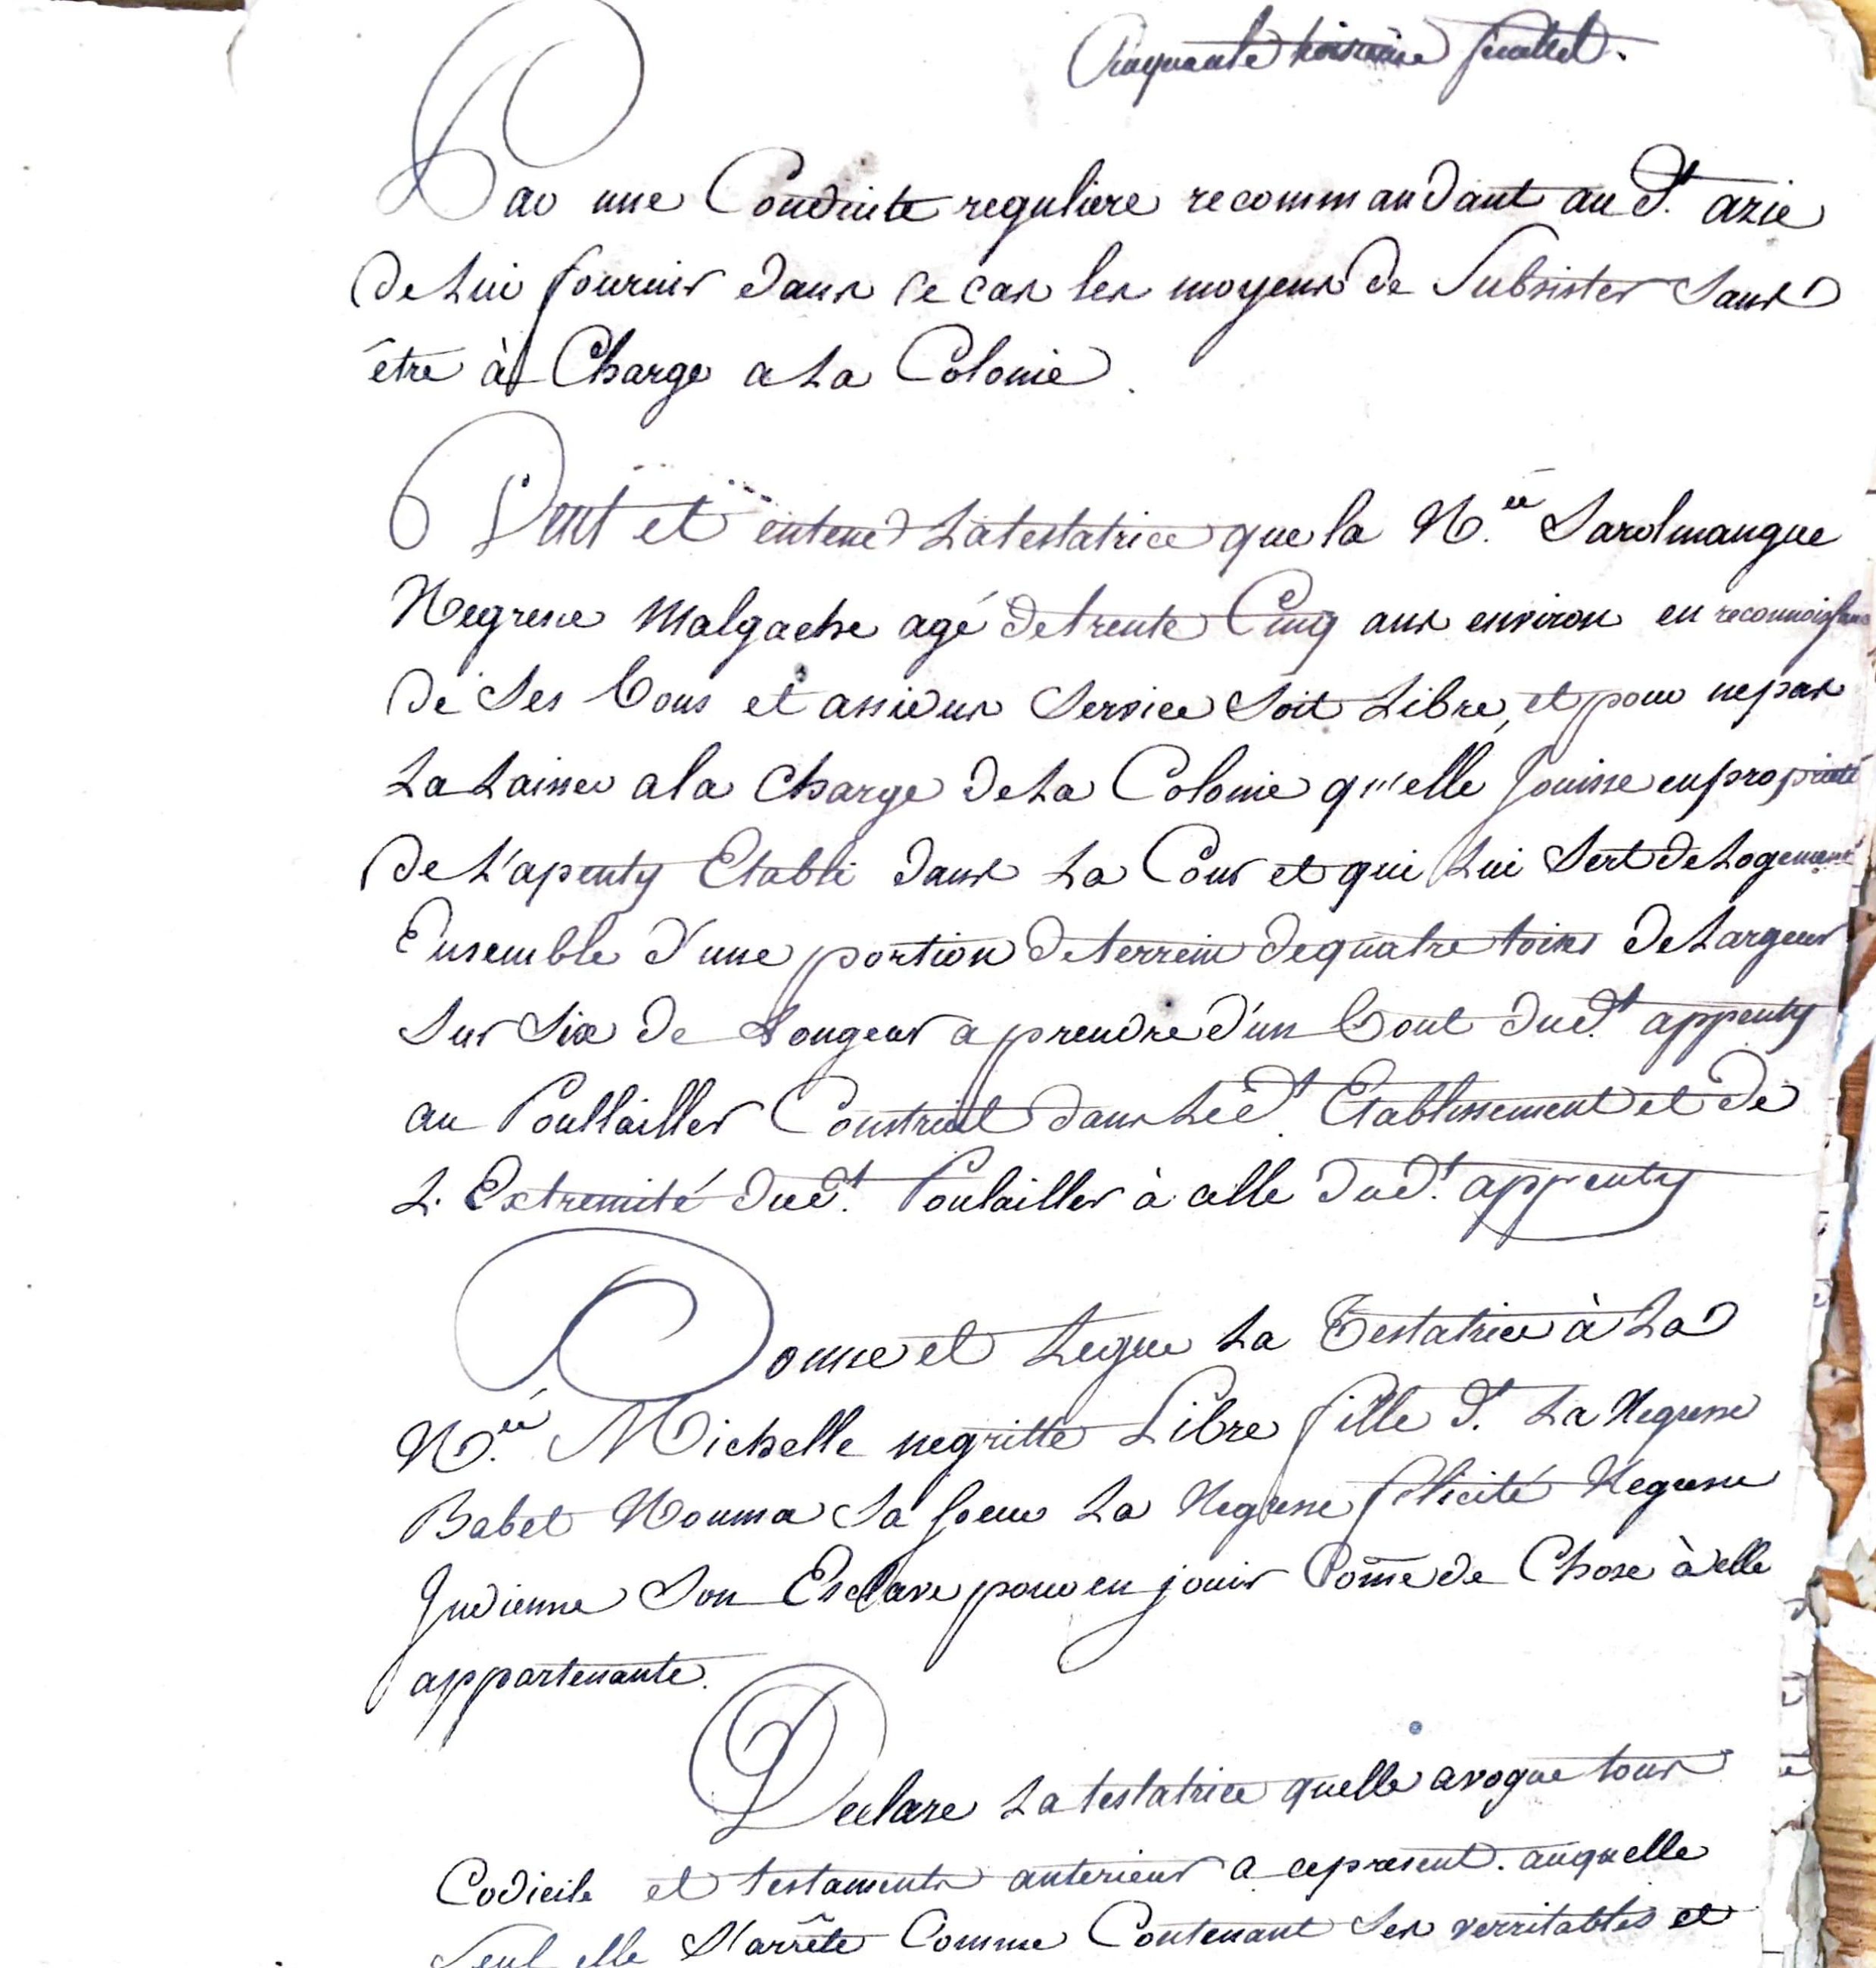 Cinquante troisième feuillet.
Par une Conduite reguliere recommandant au S.t azie
de Lui fournir dans ce cas les moyens de Subsister Sans
être à Charge a La Colonie.
Veut et entend La testatrice que la N.ée Sarolmangue
Negresse Malgache agé de trente Cinq ans environ en reconnoissance
de Ses bons et assidus Service Soit Libre, et pour ne pas
La Laisser a la Charge de La Colonie qu'elle Jouisse en propriété
de L'apenty Etabli dans La Cour et qui Lui Sert de Logement
Ensemble d'une portion de terrein de quatre toises de Largeur
Sur Six de Longeur a prendre d'un bout dud.t appenty
au Poullailler Construit dans Led.t Etablissement et de
L'Extremité dud.t Poulailler à celle dud.t appenty
Donne et Legue La Testatrice à La
N.ée Michelle negritte Libre fille d. La Negresse
Babet Nouma Sa Soeur La Negresse félicité Negresse
Indienne Son Esclave pour en jouir Comme de Chose à elle
appartenante.
Declare La testatrice quelle avoque tous
Codicile et testaments anterieurs a ce present. auquelle
Seul elle S'arrête Comme Contenant Ses verritables et